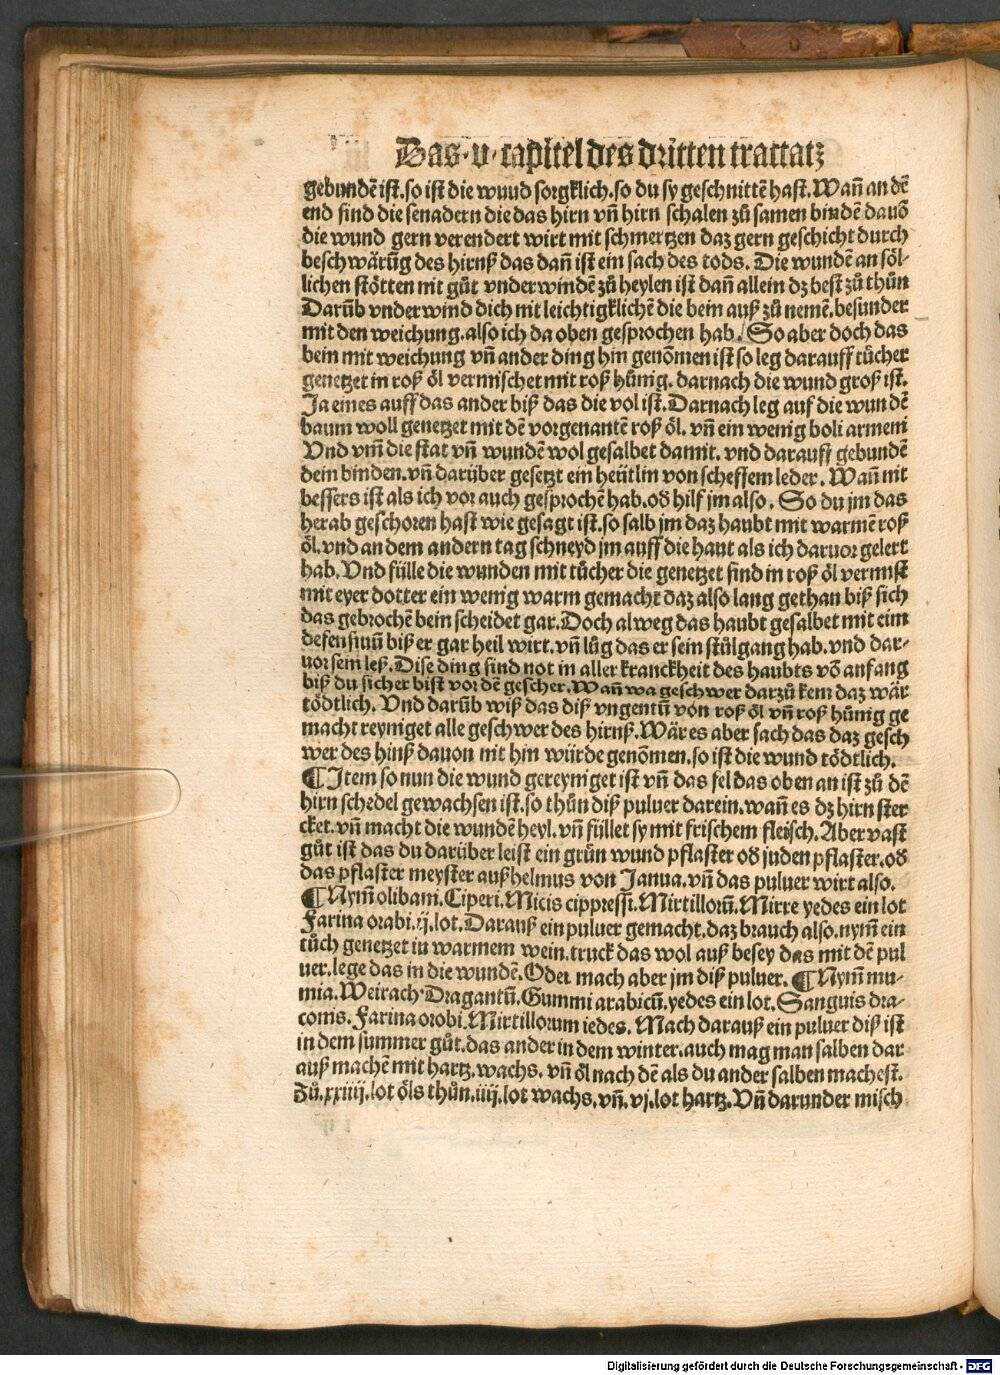 Das·v·capitel des dritten tractatz
gebundē ist.so ist die wuud sorgklich.so du sy geschnittē hast.Wañ an dē
end sind die senadern die das hirn vñ hirn schalen zů samen bindē dauō
die wund gern verendert wirt mit schmertzen daz gern geschicht durch
beschwärūg des hirnß das dañ ist ein sach des tods. Die wundē an söl-
lichen stötten nit gůt vnderwindē zů heylen ist dañ allein dz best zů thůn
Darūb vnderwind dich nit leichtigklichē die bein auß zů nemē.besunder
mit den weichung.also ich da oben gesprochen hab. So aber doch das
bein mit weichung vñ ander ding hin genōmen ist so leg darauff tücher
genetzet in roß öl vermischet mit roß hünig. darnach die wund groß ist.
Ja eines auff das ander biß das die vol ist.Darnach leg auf die wundē
baum woll genetzet mit dē vorgenantē roß öl. vñ ein wenig boli armeni
Vnd vm̄ die stat vñ wundē wol gesalbet damit. vnd darauff gebundē
dein binden.vñ darüber gesetzt ein heütlin von scheffem leder. Wañ nit
bessers ist als ich vor auch gesprochē hab.od hilf jm also. So du jm das
herab geschoren hast wie gesagt ist.so salb jm daz haubt mit warmē roß
öl.vnd an dem andern tag schneyd jm auff die haut als ich daruor gelert
hab.Vnd fülle die wunden mit tücher die genetzet sind in roß öl vermist
mit eyer dotter ein wenig warm gemacht daz also lang gethan biß sich
das gebrochē bein scheidet gar.Doch alweg das haubt gesalbet mit eim
defensiuū biß er gar heil wirt.vñ lůg das er sein stůlgang hab.vnd dar-
uor sein leß.Dise ding sind not in aller kranckheit des haubts vō anfang
biß du sicher bist vor dē gescher.Wañ wa geschwer darzů kem daz wär
tödtlich. Vnd darūb wiß das diß vngentū von roß öl vñ roß hünig ge
macht reyniget alle geschwer des hirnß.Wär es aber sach das daz gesch
wer des hinß dauon nit hin würde genōmen.so ist die wund tödtlich.
¶Item so nun die wund gereyniget ist vñ das fel das oben an ist zů dē
hirn schedel gewachsen ist.so thůn diß puluer darein.wañ es dz hirn ster
cket.vñ macht die wundē heyl.vñ füllet sy mit frischem fleisch.Aber vast
gůt ist das du darüber leist ein grün wund pflaster od juden pflaster.od
das pflaster meyster außhelmus von Janua.vñ das puluer wirt also.
¶Nym̄ olibani.Ciperi.Micis cippressi.Mirtillorū.Mirre yedes ein lot
Farina orabi.ij.lot.Darauß ein puluer gemacht.daz brauch also.nym̄ ein
tůch genetzet iu warmem wein.truck das wol auß besey das mit dē pul
uer.lege das in die wundē.Oder mach aber jm diß puluer. ¶Nym̄ mu-
mia.Weirach·Dragantū.Gummi arabicū.yedes ein lot.Sanguis dra-
conis.Farina orobi.Mirtillorum iedes. Mach darauß ein puluer diß ist
in dem summer gůt.das ander in dem winter.auch mag man salben dar
auß machē mit hartz.wachs. vñ öl nach dē als du ander salben machest.
Zů.xxiiij.lot öls thůn.iiij.lot wachs.vñ.vj.lot hartz.Vñ darunder misch
Digitalisierung gefördert durch die Deutsche Forschungsgemeinschaft - DFG